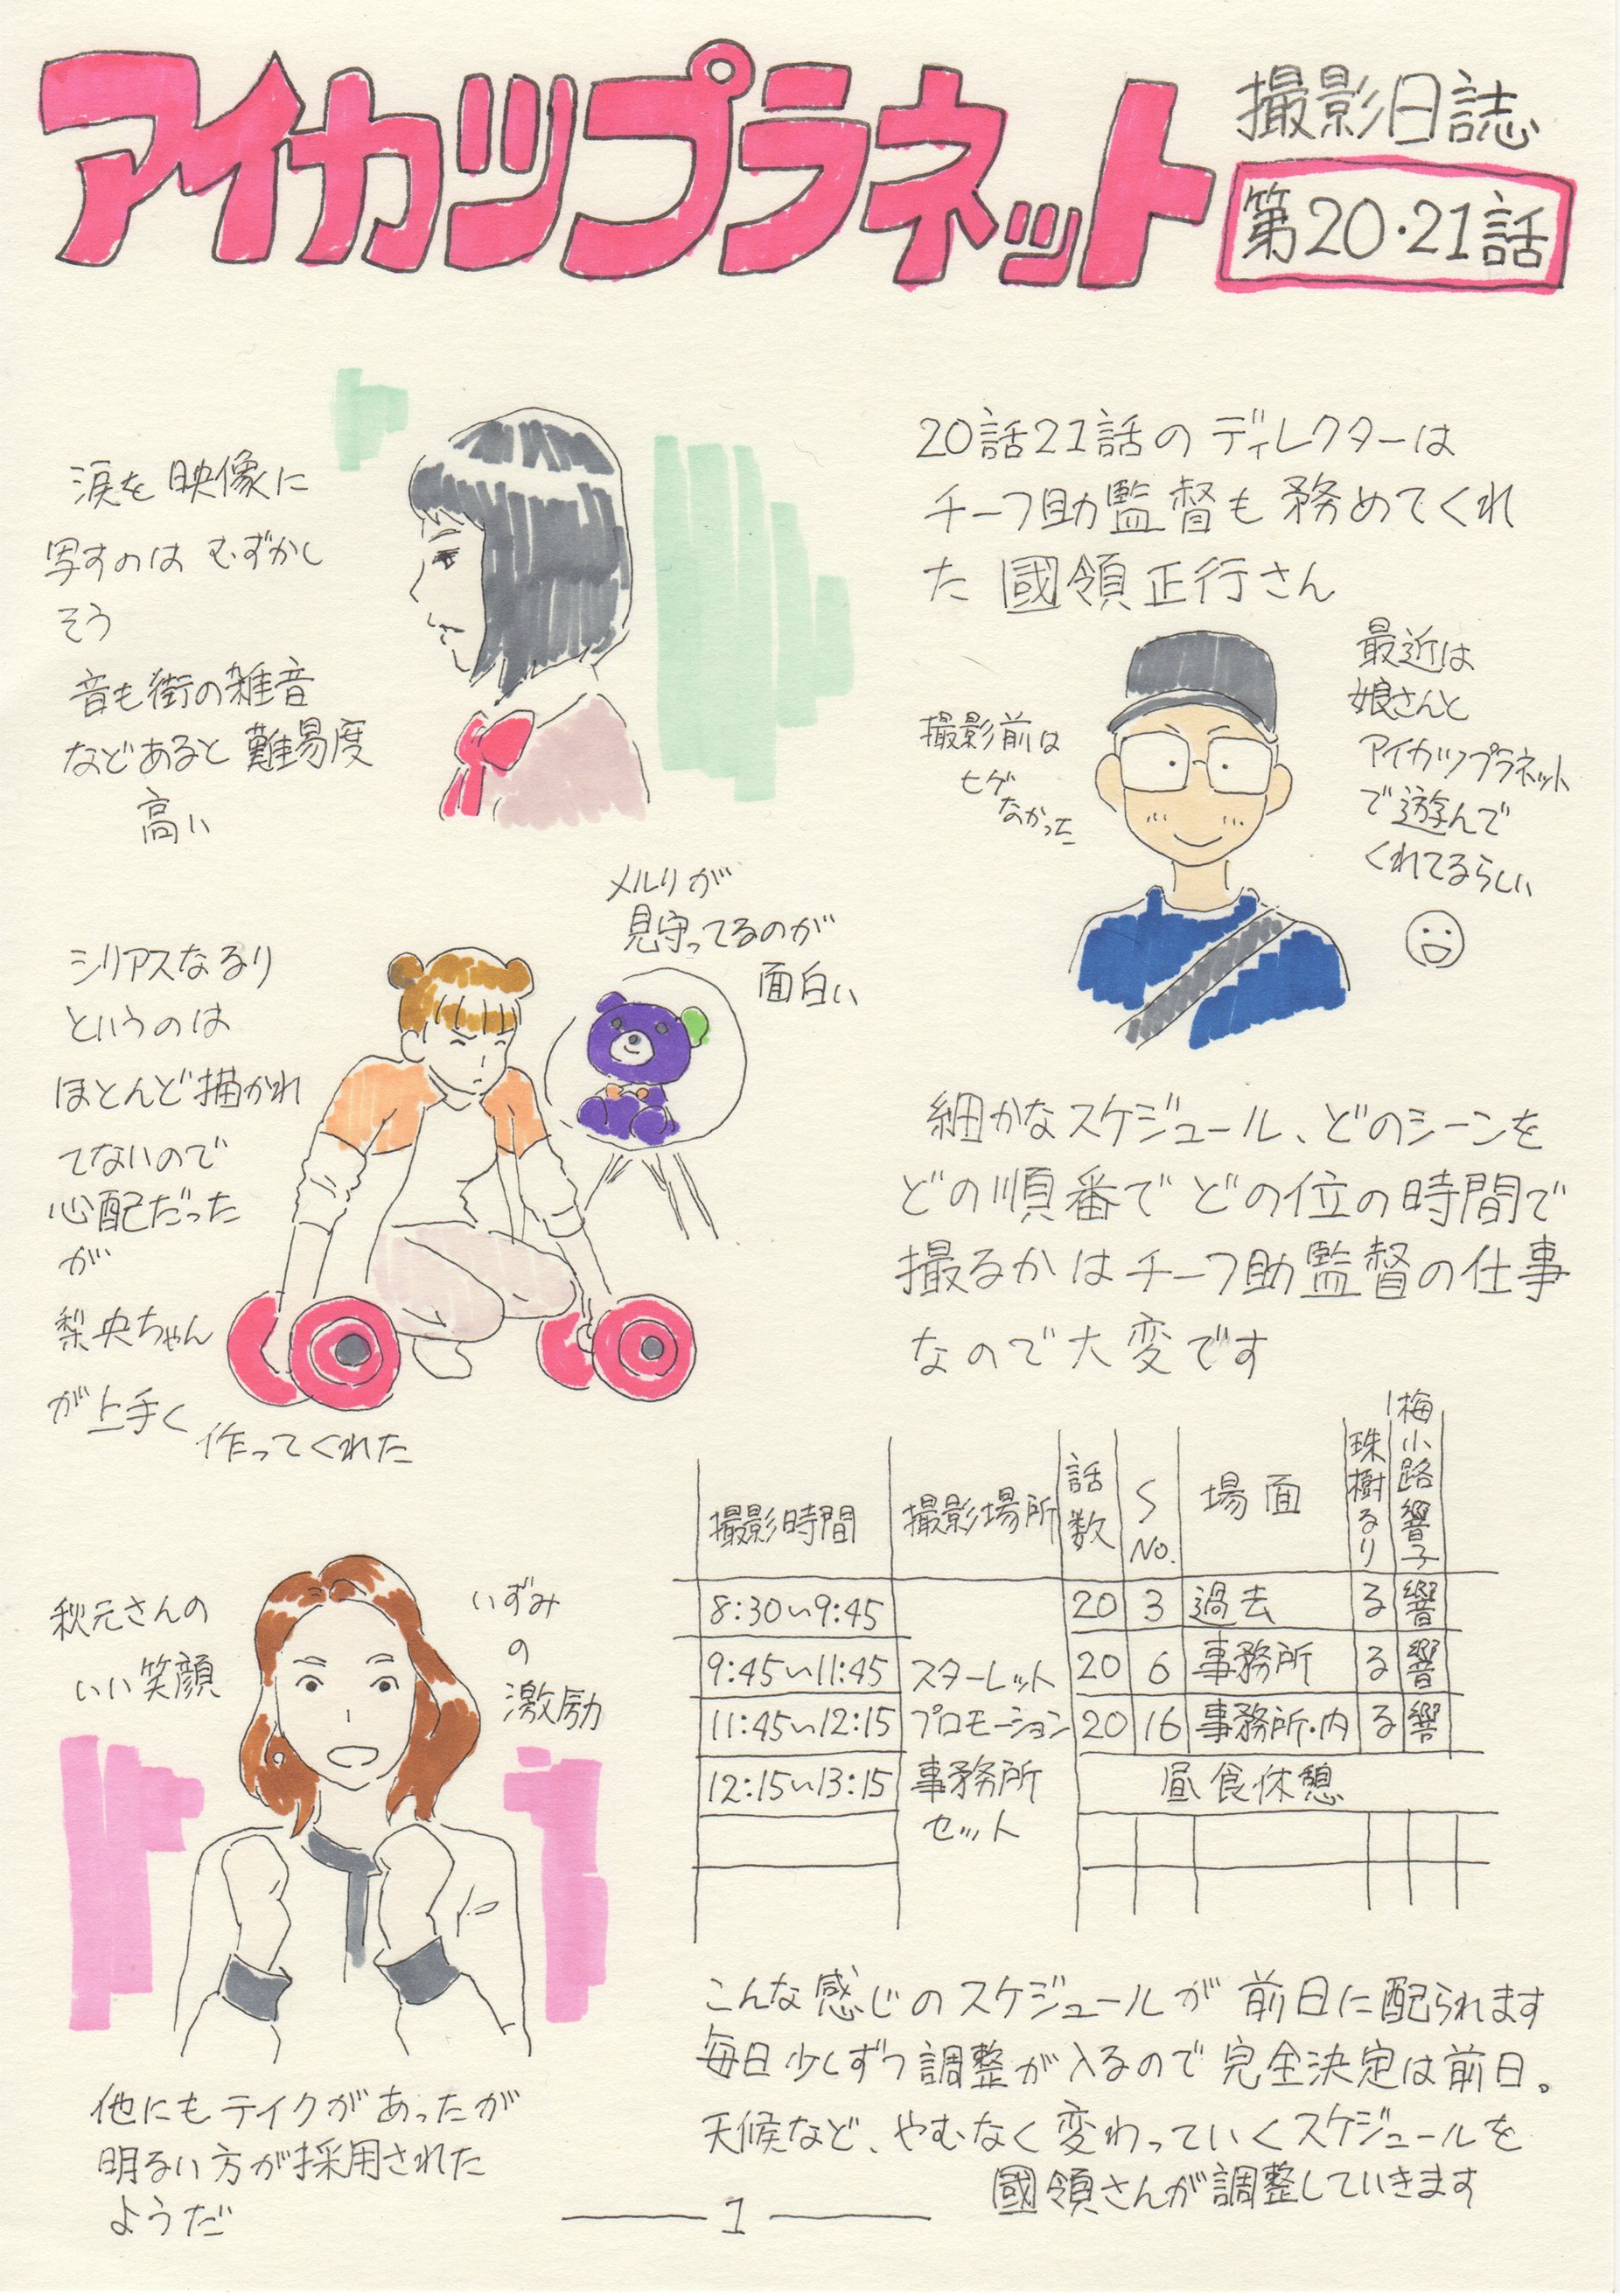 アイカツプラネット
撮影日誌
第20・21話
涙を映像に
写すのはむずかし
そう
音も街の雑音
などあると難易度
高い
20話21話のディレクターは
チーフ助監督も務めてくれ
た國領正行さん
撮影前は
ヒゲ
なかった
最近は
娘さんと
アイカツプラネット
で遊んで
くれてるらしい
メルリが
見守ってるのが
面白い
シリアスなるり
というのは
ほとんど描かれ
てないので
心配だった
が
梨央ちゃん
が上手く
作ってくれた
細かなスケジュール、どのシーンを
どの順番でどの位の時間で
撮るかはチーフ助監督の仕事
なので大変です
撮影時間 撮影場所 話数 S No. 場面 珠樹るり 梅小路響子
8:30〜9:45 20 3 過去 る 響
9:45〜11:45 スターレット 20 6 事務所 る 響
11:45〜12:15 プロモーション 20 16 事務所・内 る 響
12:15〜13:15 事務所 昼食休憩
セット
秋元さんの
いい笑顔
いずみ
の
激励
他にもテイクがあったが
明るい方が採用された
ようだ
こんな感じのスケジュールが前日に配られます
毎日少しずつ調整が入るので完全決定は前日。
天候など、やむなく変わっていくスケジュールを
國領さんが調整していきます
1